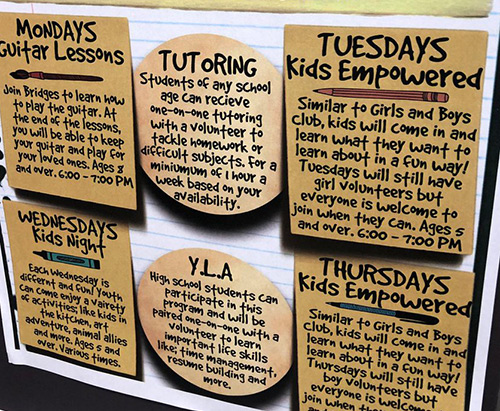 MONDAYS
Guitar Lessons
Join Bridges to learn how
to play the guitar. At
the end of the lessons,
you will be able to keep
your guitar and play for
your loved ones. Ages 8
and over. 6:00 - 7:00 PM
TUTORING
Students of any school
age can recieve
one-on-one tutoring
with a volunteer to
tackle homework or
difficult subjects. For a
miniumum of 1 hour a
week based on your
availability.
TUESDAYS
Kids Empowered
Similar to Girls and Boys
club, kids will come in and
learn what they want to
learn about in a fun way!
Tuesdays will still have
girl volunteers but
everyone is welcome to
join when they can. Ages 5
and over. 6:00 - 7:00 PM
WEDNESDAYS
Kids Night
Each Wednesday is
differnt and fun! Youth
can come enjoy a vairety
of activities; like kids in
the kitchen, art
adventure, animal allies
and more. Ages 5 and
over. Various times.
Y.L.A
High school students can
participate in this
program and will be
paired one-on-one with a
volunteer to learn
important life skills
like; time management,
resume building and
more.
THURSDAYS
Kids Empowered
Similar to Girls and Boys
Club, kids will come in and
learn what they want to
learn about in a fun way!
Thursdays will still have
boy volunteers but
everyone is welcome
join when they